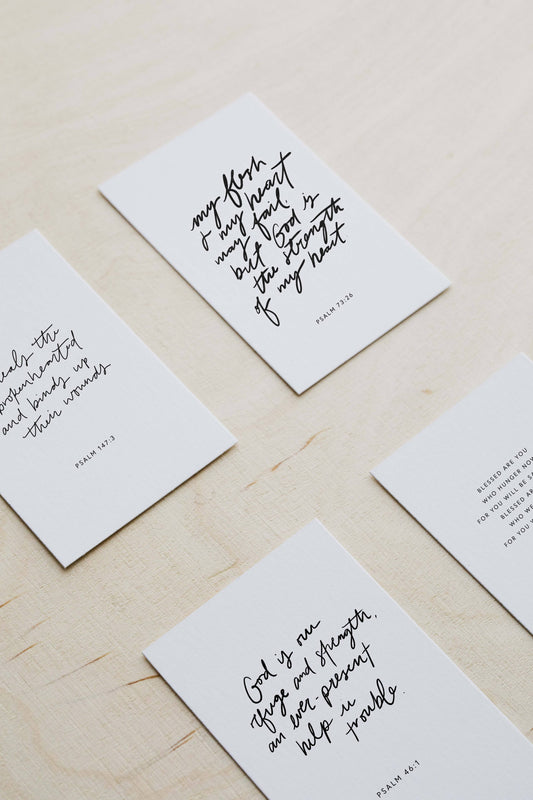 my flesh
& my heart
may fail
but God is
the strength
of my heart
PSALM 73:26
heals the
brokenhearted
and binds up
their wounds
PSALM 147:3
BLESSED ARE YOU
WHO HUNGER NOW
FOR YOU WILL BE
BLESSED
WHO
FOR YOU
God is our
refuge and strength,
an ever-present
help in
trouble.
PSALM 46:1